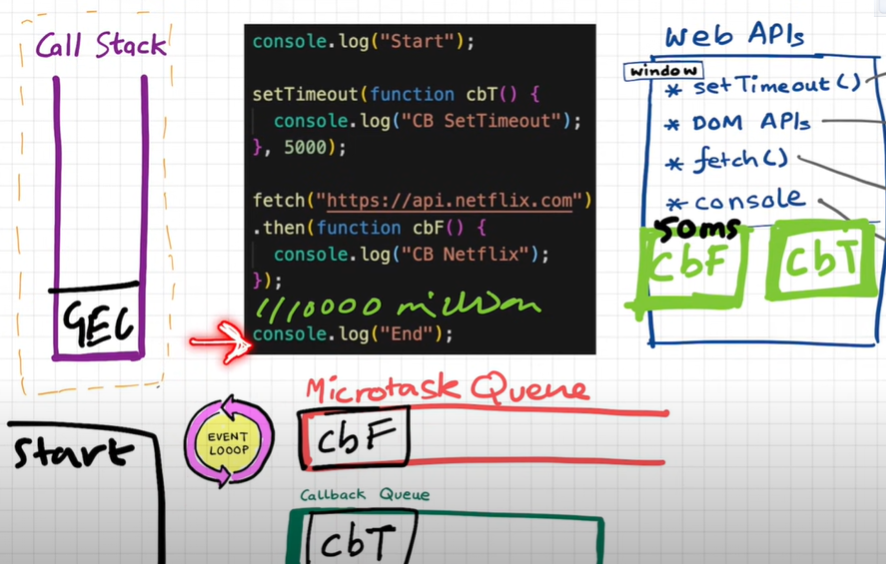 Call Stack
GEC
console.log("Start");
setTimeout(function cbT() {
console.log("CB SetTimeout");
}, 5000);
fetch("https://api.netflix.com")
.then(function cbF() {
console.log("CB Netflix");
});
//10000 million
console.log("End");
Web APIs
window
* setTimeout()
* DOM APIs
* fetch()
* console
50ms
cbF
cbT
Start
EVENT
LOOOP
Microtask Queue
cbF
Callback Queue
cbT